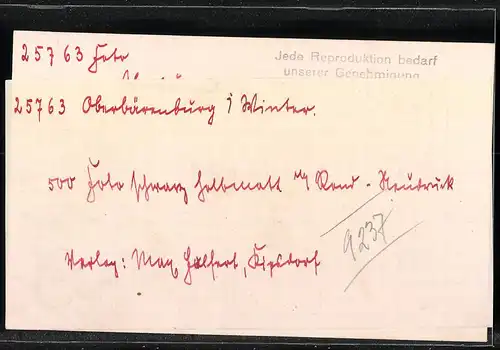 25763 Foto
Jede Reproduktion bedarf
unserer Genehmigung
25763 Oberbärenburg i Winter.
500 Foto schwarz halbmatt m/ Rand - Neudruck
9237
Verlag: Max Halfert, Kipsdorf